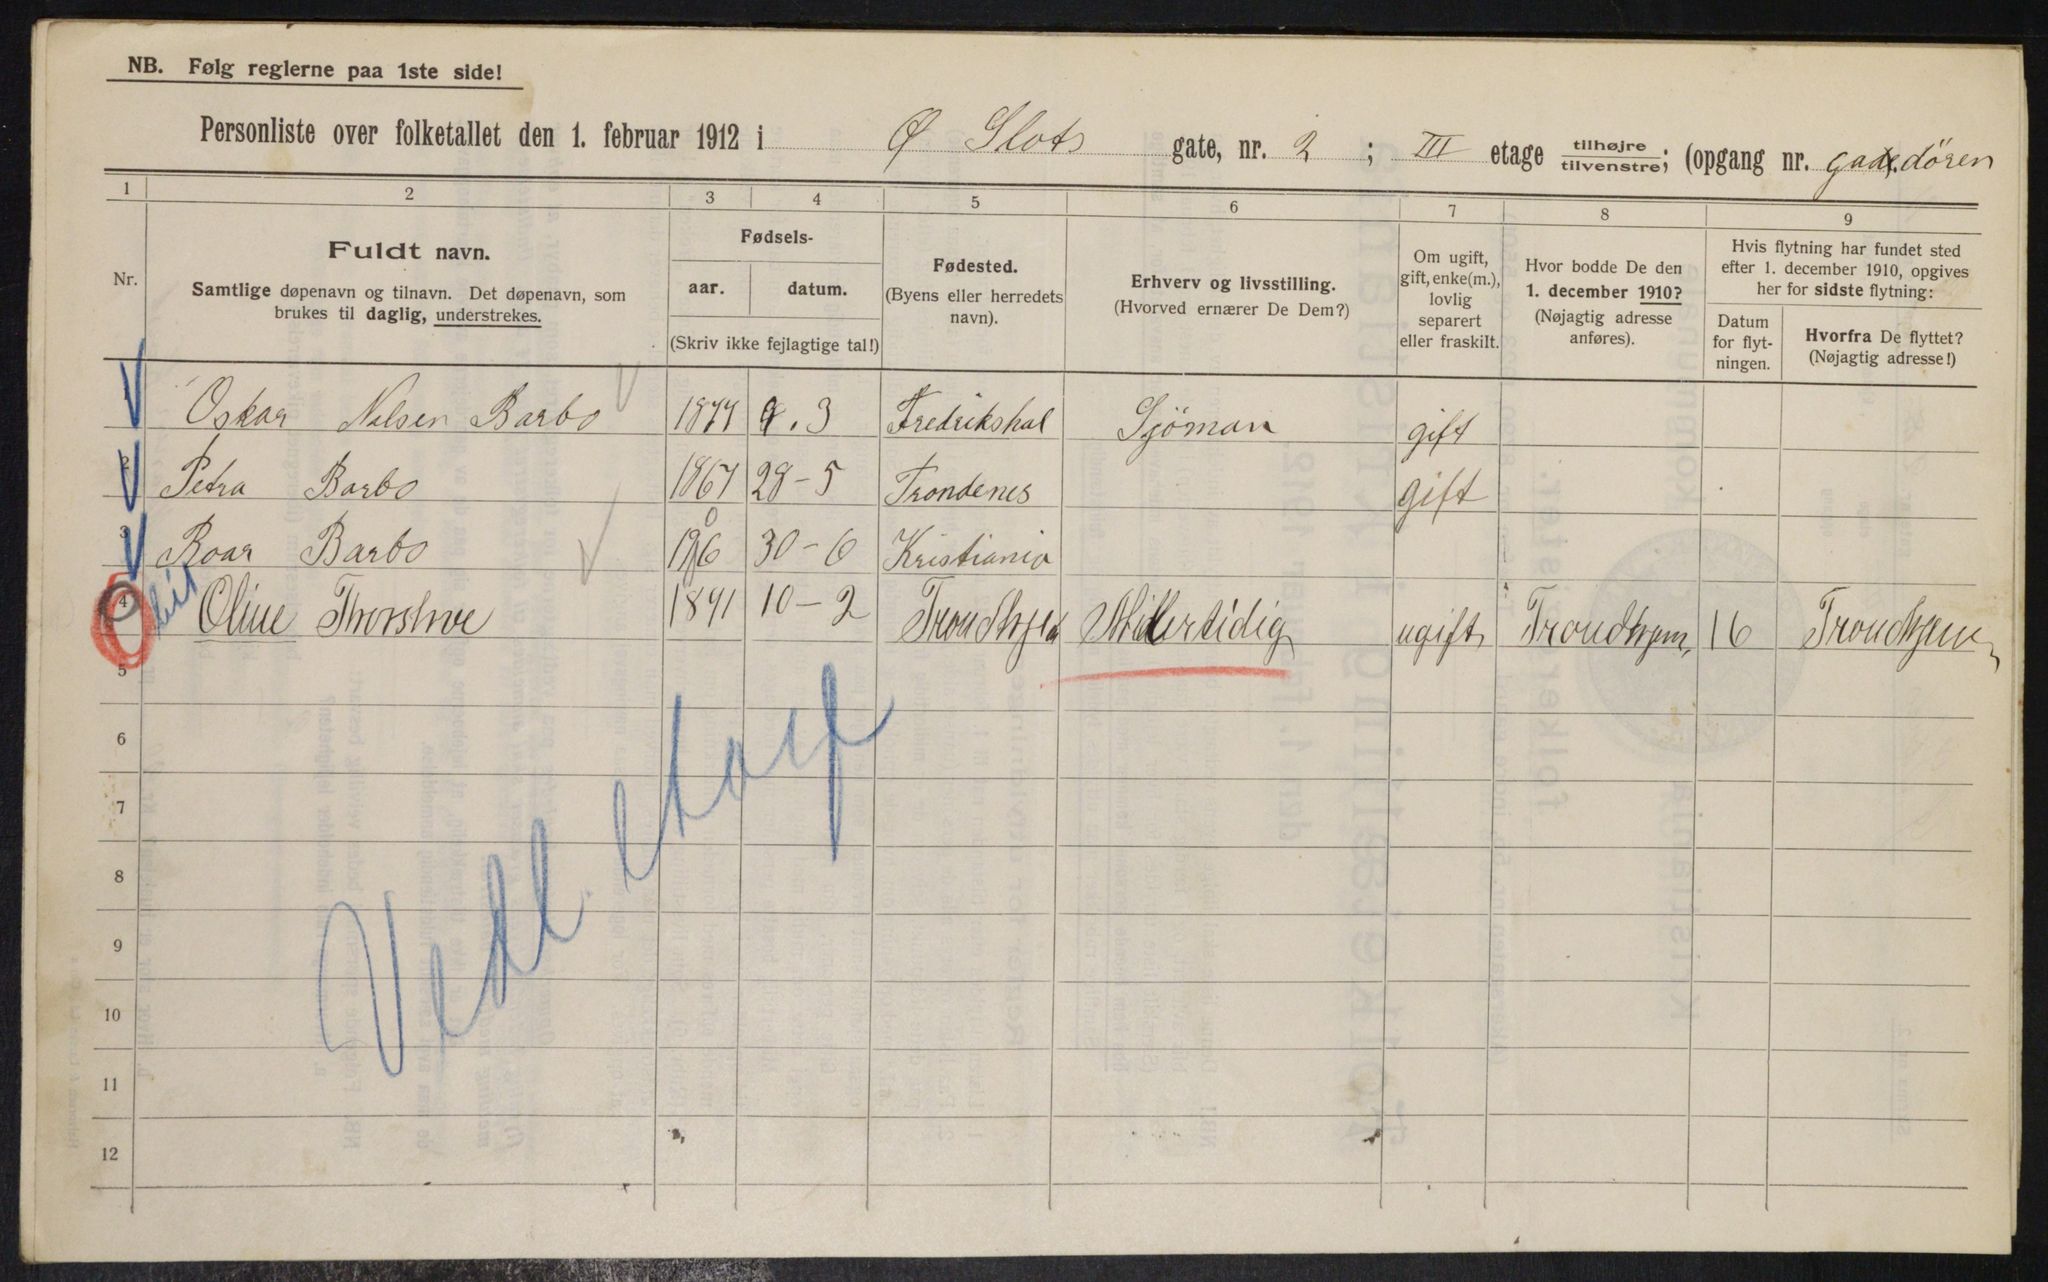 NB. Følg reglerne paa 1ste side!
Personliste over folketallet den 1. februar 1912 i Ø Slots gate, nr. 2 ; III etage tilhøjre/tilvenstre; (opgang nr. gadedören
1 2 3 4 5 6 7 8 9
Nr.
Fuldt navn.
Samtlige døpenavn og tilnavn. Det døpenavn, som
brukes til daglig, understrekes.
Fødsels-
aar. datum.
(Skriv ikke fejlagtige tal!)
Fødested.
(Byens eller herredets
navn).
Erhverv og livsstilling.
(Hvorved ernærer De Dem?)
Om ugift,
gift, enke(m.),
lovlig
separert
eller fraskilt.
Hvor bodde De den
1. december 1910?
(Nøjagtig adresse
anføres).
Hvis flytning har fundet sted
efter 1. december 1910, opgives
her for sidste flytning:
Datum
for flyt-
ningen.
Hvorfra De flyttet?
(Nøjagtig adresse!)
Oskar Nilsen Barbo 1877 9.3 Fredrikshal Sjöman gift
2 Petra Barbo 1867 28-5 Trondenes gift
3 Roar Barbo 1906 30-6 Kristiania
4 Oline Thorshve 1891 10-2 Trondhjem Midlertidig ugift Trondhjem, 16 Trondhjem,
5
6
7
8
9
10
11
12